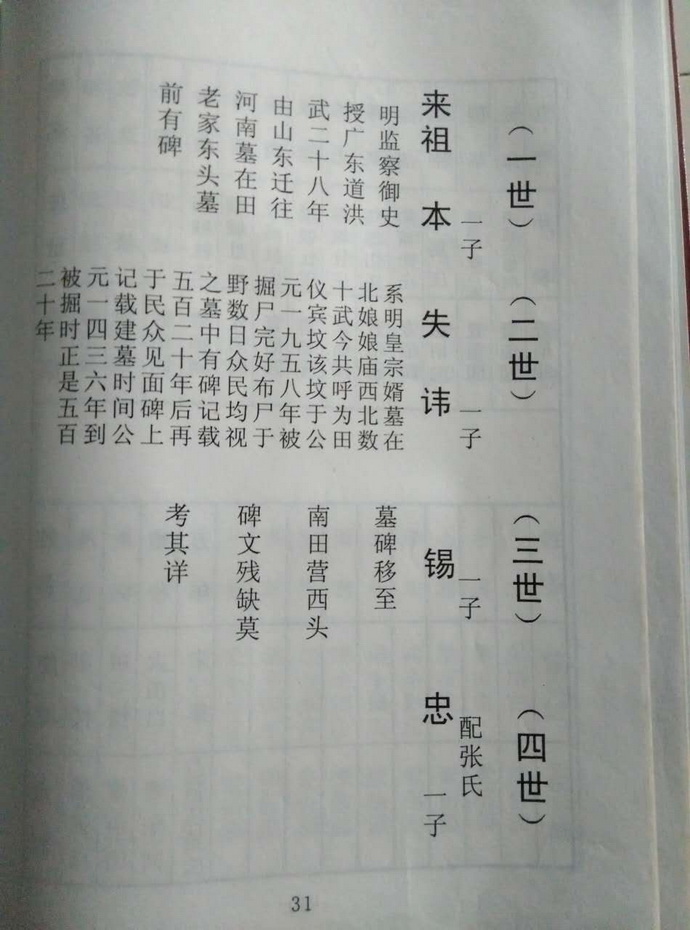 （一世）
一子
来祖 本
明监察御史
授广东道洪
武二十八年
由山东迁往
河南墓在田
老家东头墓
前有碑
（二世）
一子
失讳
系明皇宗婿墓在
北娘娘庙西北数
十武今共呼为田
仪宾坟该坟于公
元一九五八年被
掘尸完好布尸于
野数日众民均视
之墓中有碑记载
五百二十年后再
于民众见面碑上
记载建墓时间公
元一四三六年到
被掘时正是五百
二十年
（三世）
一子
锡
墓碑移至
南田营西头
碑文残缺莫
考其详
（四世）
配张氏
忠
一子
31